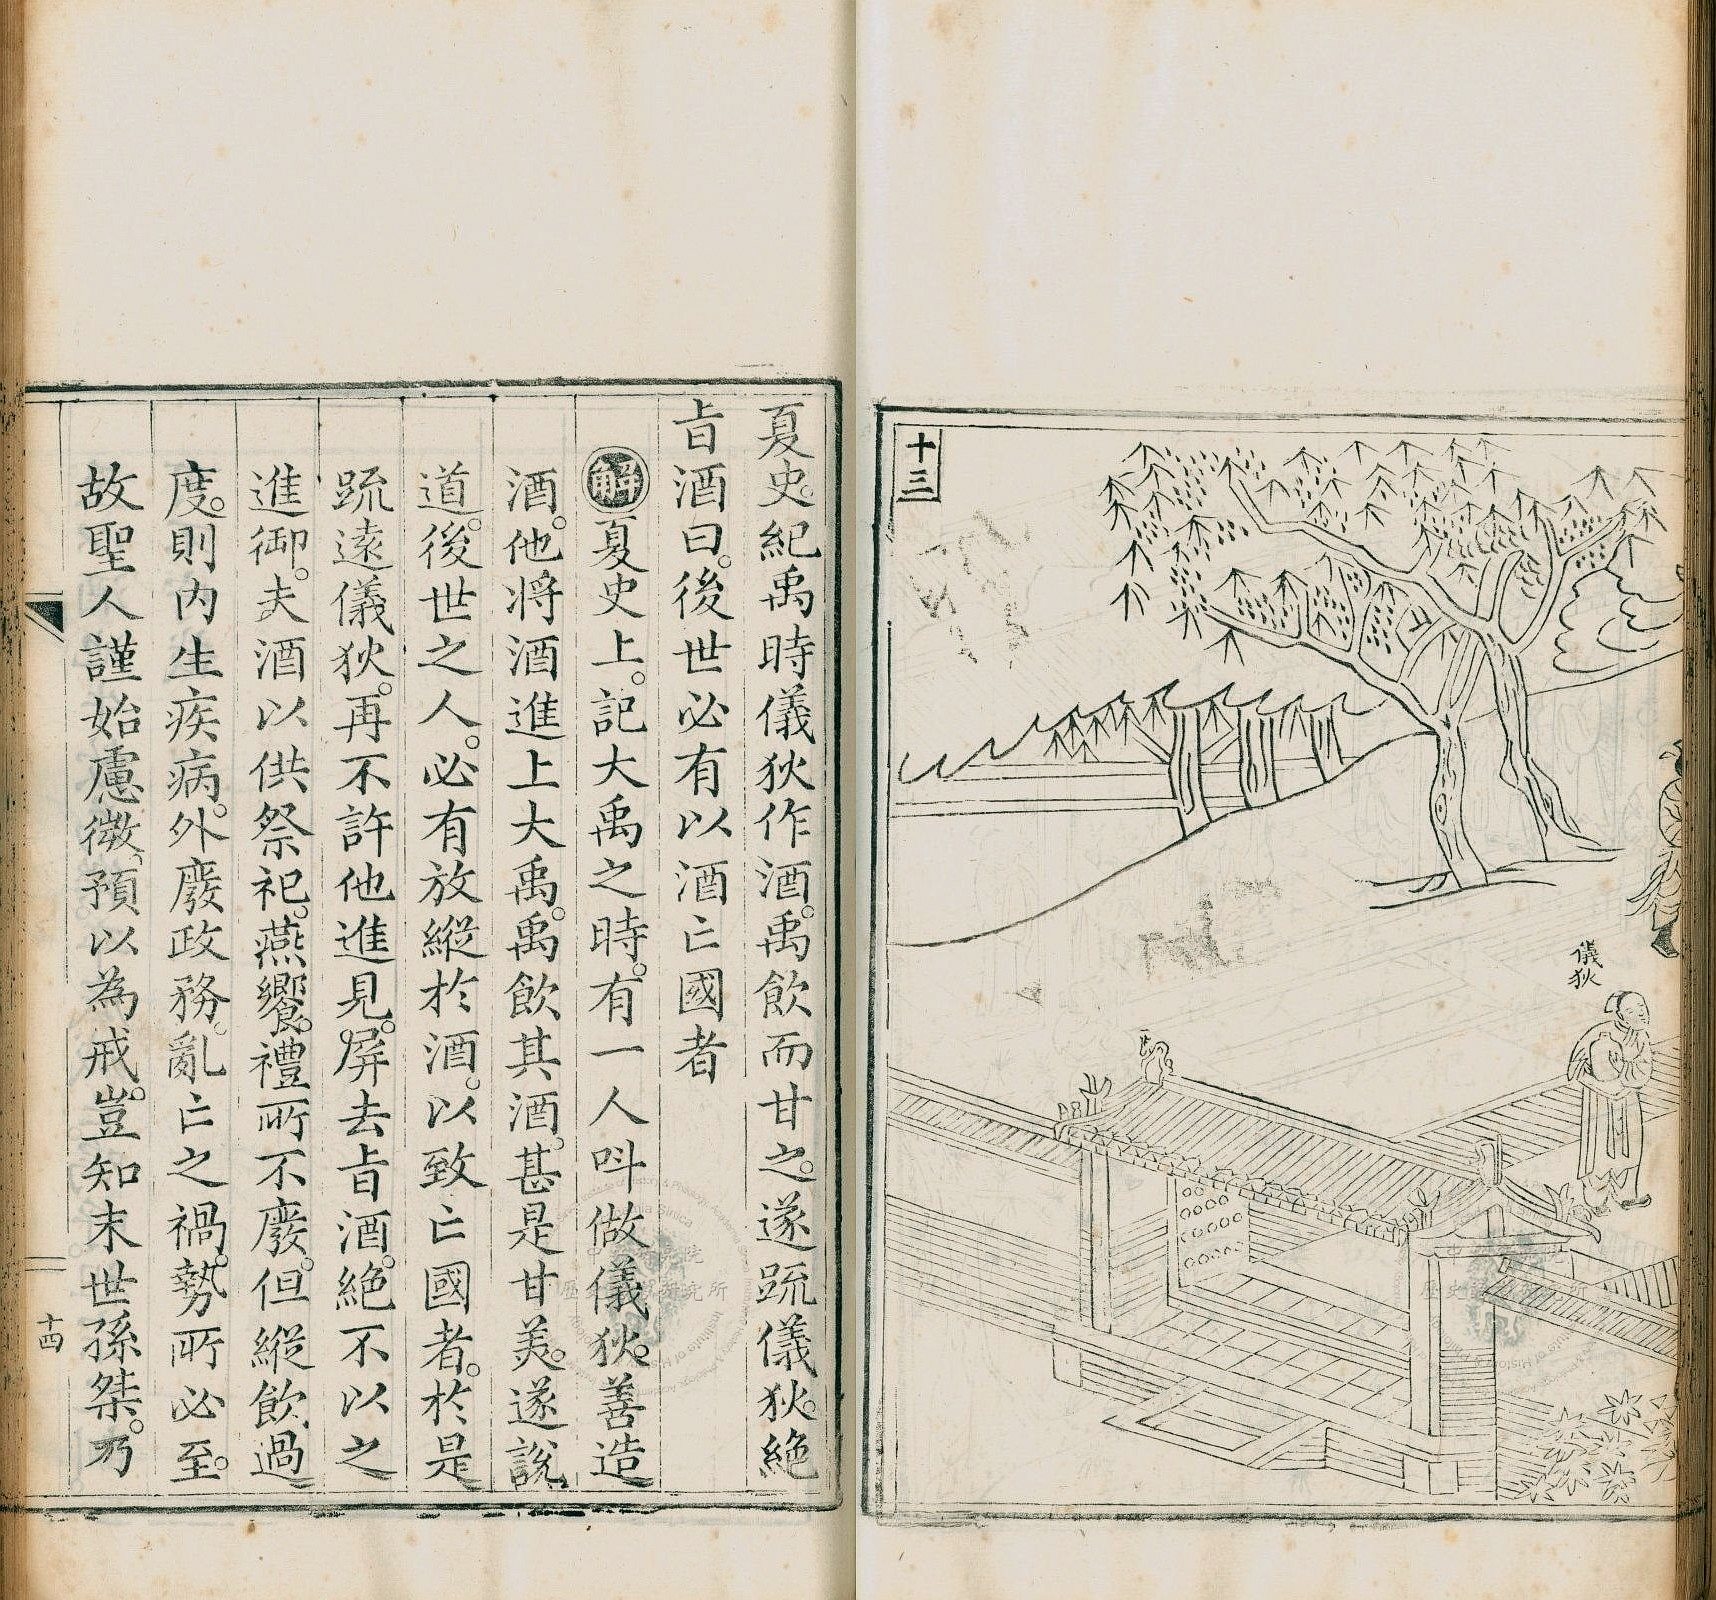 十三
儀狄
夏史紀禹時儀狄作酒。禹飲而甘之。遂疏儀狄。絕
旨酒曰。後世必有以酒亡國者
解夏史上。記大禹之時。有一人叫做儀狄。善造
酒。他將酒進上大禹。禹飲其酒。甚是甘美。遂說
道。後世之人。必有放縱於酒。以致亡國者。於是
疏遠儀狄。再不許他進見。屏去旨酒。絕不以之
進御。夫酒以供祭祀。燕饗。禮所不廢。但縱飲過
度。則內生疾病。外廢政務。亂亡之禍。勢所必至。
故聖人謹始慮微、預以為戒。豈知末世孫桀。乃
十四